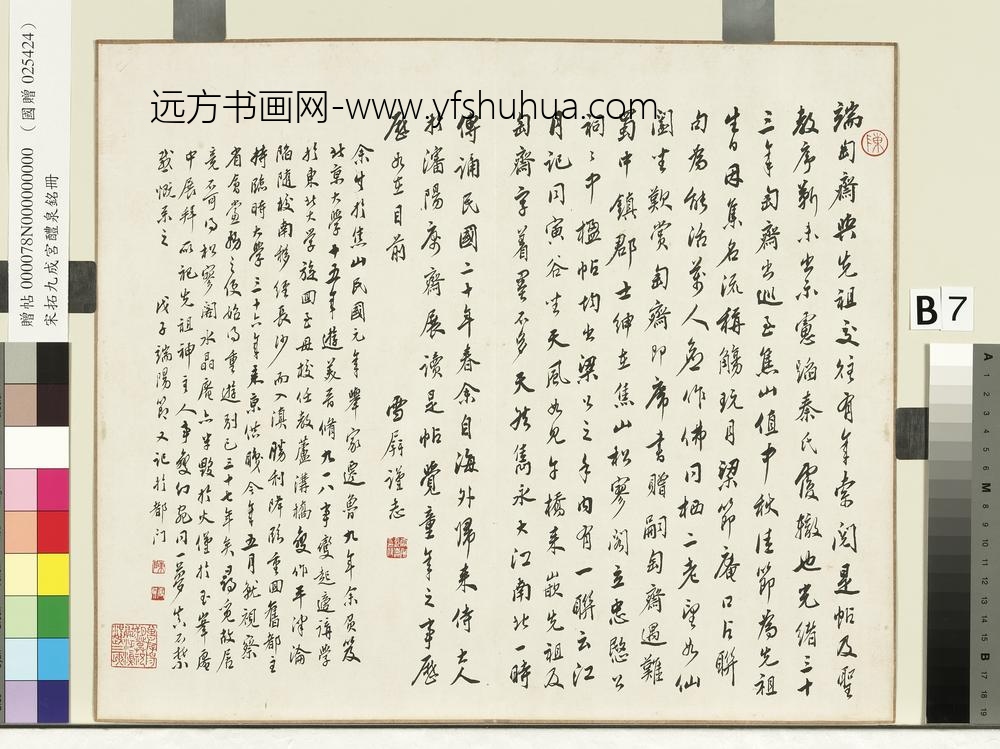 远方书画网-www.yfshuhua.com
贈帖 000078N000000000 （國贈 025424）
宋拓九成宮醴泉銘冊
B 7
端匋齋與先祖交往有年索閱是帖及聖
教序靳未出示慮蹈秦氏覆轍也光緒三十
三年匋齋出巡至焦山值中秋佳節為先祖
生日因集名流稱觴玩月梁節庵口占聯
句為能活萬人宜作佛同栖二老望如仙
闔坐歎賞匋齋即席書贈嗣匋齋遇難
蜀中鎮郡士紳在焦山松寥閣立忠愍公
祠祠中楹帖均出梁公之手內有一聯云江
月記同寅谷坐天風如見午橋來嵌先祖及
匋齋字著墨不多天然雋永大江南北一時
傳誦民國二十年春余自海外歸來侍大人
於瀋陽康齋展讀是帖覺童年之事歷
歷如在目前
雪屏謹志
余生於焦山民國元年舉家遷魯九年余負笈
北京大學十五年遊美晉脩九一八事變起適講學
於東北大學旋回至母校任教蘆溝橋變作平津淪
陷隨校南移經長沙而入滇勝利降臨重回舊都主
持臨時大學三十六年來京供職今年五月就視察
省會黨務之便始得重遊別已三十七年矣尋覓故居
竟不可得松寥閣水晶庵亦半毀於火僅於玉峯庵
中展拜所祀先祖神主人事變幻宛同一夢真不禁
感慨系之
戊子端陽節又記於都門
陳
A 1 2 3 4 5 6 7 8 9 10 11 12 13 14 15 B 17 18 19